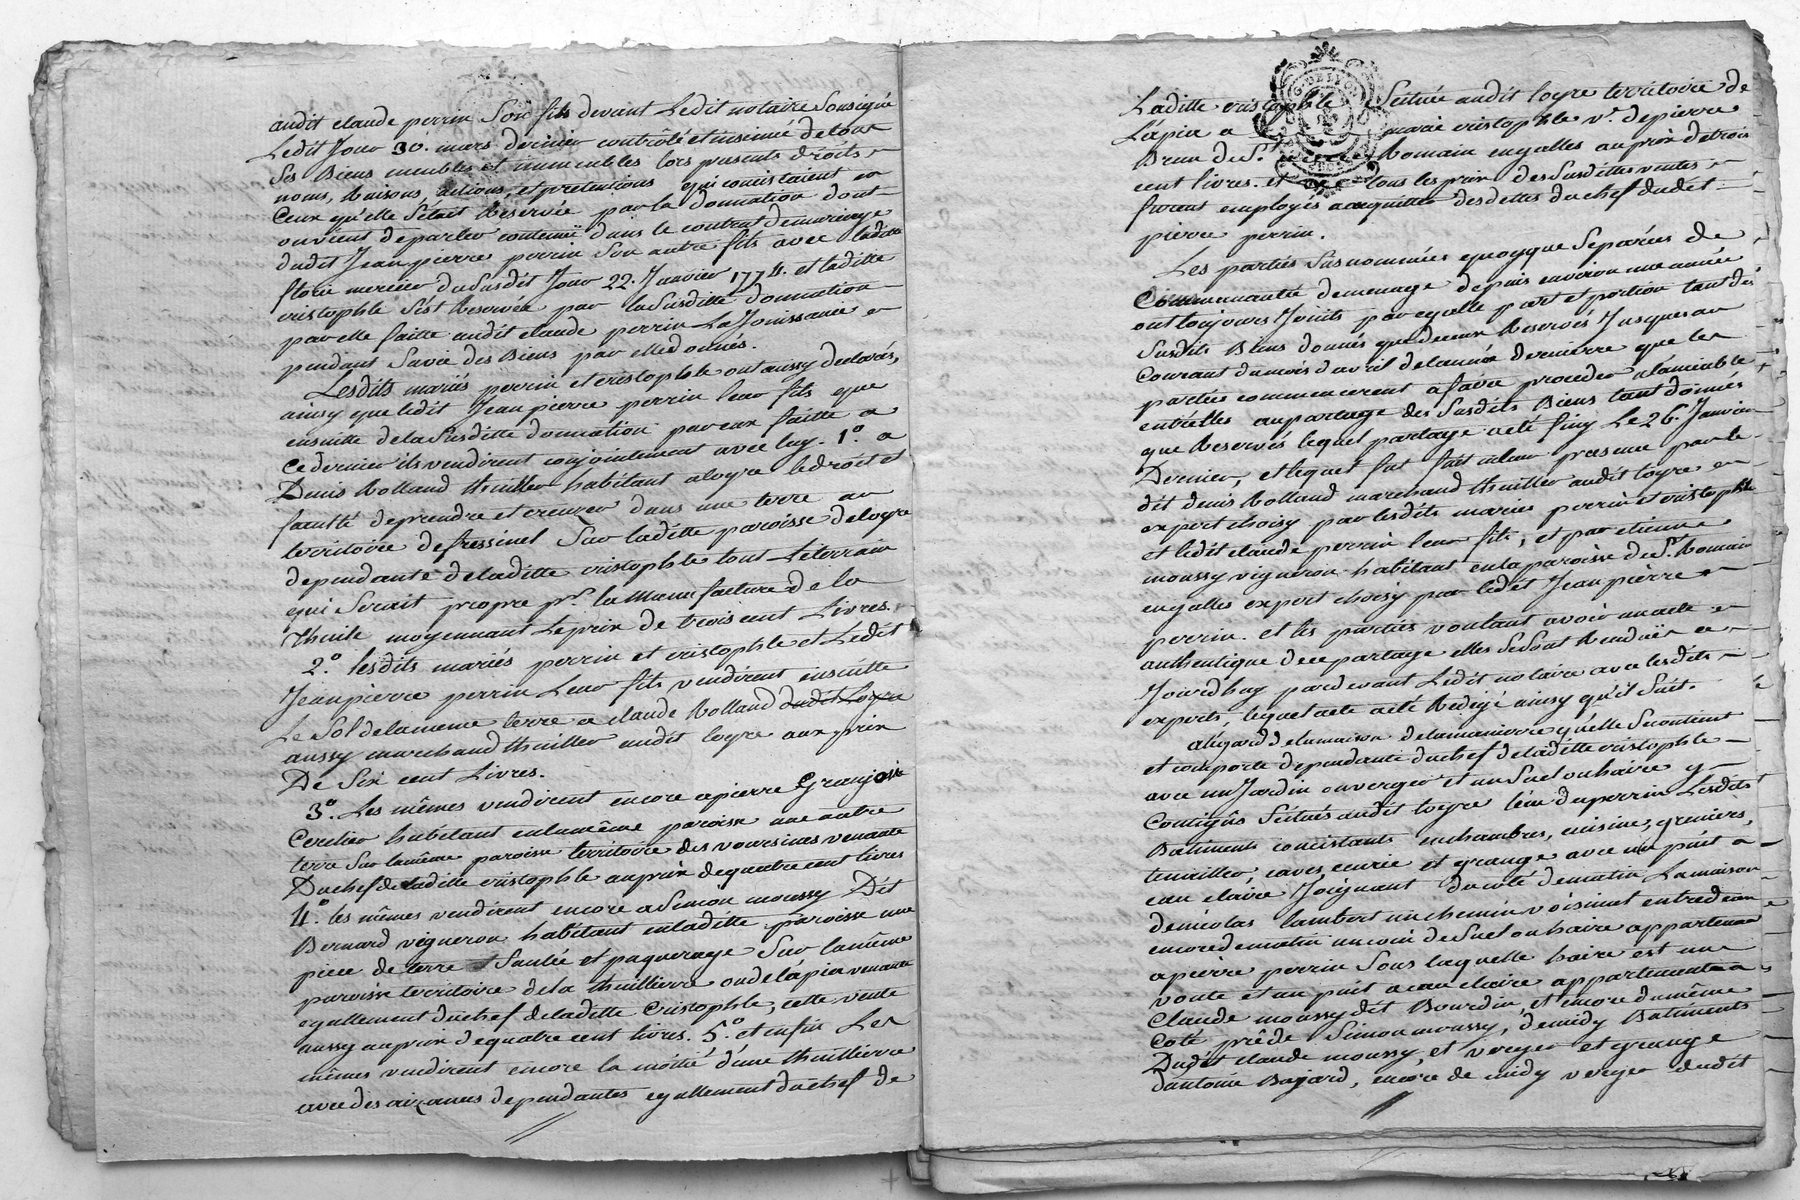 audit claude perrin son fils devant Ledit notaire Soussigné
Ledit Jour 30. mars dernier contrôlé et insinué de tous
Ses Biens meubles et immeubles lors presents droits
noms, Raisons, actions, et pretentions qui concistaient en
Ceux qu'elle S'etait Reservée par la donnation dont
on vient de parler contenuë dans le contrat de mariage
dudit Jean pierre perrin Son autre fils avec ladite
florie mercier du Susdit Jour 22. Janvier 1774. et laditte
cristophle S'est Reservée par la Susditte donnation
par elle faitte audit claude perrin La Jouissance
pendant Sa vie des Biens par elle donnés.
Lesdits mariés perrin et cristophle ont aussy declarés,
ainsy que ledit Jean pierre perrin leur fils que
ensuitte de la Susditte donnation par eux faitte a
Ce dernier ils vendirent conjointement avec luy. 1.° a
Denis Rolland thuillier habitant a loyre le droit et
faculté de prendre et creuzer dans une terre au
territoire de fressinel Sur laditte paroisse de loyre
dependante de laditte cristophle tout Le terrain
qui Serait propre pr. la Manufacture de la
Thuile moyennant Le prix de trois cent Livres.
2.° lesdits mariés perrin et cristophle et Ledit
Jean pierre perrin Leur fils vendirent ensuitte
Le Sol de la meme terre a claude Rolland dudit Loyre
aussy marchand thuillier audit loyre aux prix
De Six cent Livres.
3.° Les mêmes vendirent encore a pierre Granjon
Cerclier habitant en la même paroisse une autre
terre Sur la même paroisse territoire des voursines venante
Du chef de laditte cristophle au prix de quatre cent livres
4.° les mêmes vendirent encore a Simon moussy Dit
Bernard vigneron habitant en laditte paroisse une
piece de terre Saulée et paquerage Sur la même
paroisse territoire de la thuillierre ou de lapia venante
egallement du chef de laditte Cristophle, cette vente
aussy au prix de quatre cent livres. 5.° et enfin Les
mêmes vendirent encore la moitié d'une thuillierre
avec des aizances dependantes egallement du chef de
Laditte cristophle Scituée audit loyre territoire de
Lapia a marie cristophle ve. de pierre
Brun de St. Romain en galles au prix de trois
cent livres. et tous les prix des Susdittes ventes
furent employés a acquitter des dettes du chef dudit
pierre perrin.
Les parties Susnommées quoyque Separées de
Communauté de menage depuis environ une année
ont toujours Jouits par egalle part et portion tant des
Susdits Biens donnés que de ceux Reservés Jusques au
Courant du mois d'avril de l'année dernierre que les
parties commencerent a faire proceder a l'amiable
entr'elles au partage des Susdits Biens tant donnés
que Reservés lequel partage a eté finy Le 26. Janvier
Dernier, et lequel fut fait en leur presence par le
dit denis Rolland marchand thuillier audit loyre
expert choisy par lesdits mariés perrin et cristophle
et ledit claude perrin leur fils, et par etienne
moussy vigneron habitant en la paroisse de St. Romain
en galles expert choisy par ledit Jean pierre
perrin. et les parties voulant avoir un acte
authentique de ce partage elles Se Sont Renduës
Jourd'huy pardevant Ledit notaire avec lesdits
experts, lequel acte a eté Redigé ainsy qu'il Suit.
a l'égard de la maison de la manierre qu'elle Se contient
et comporte dependante du chef de laditte cristophle
avec un Jardin ou verger et un Suel ou haire y
Contigûs Scitués audit loyre lieu du perrin Lesdits
Batiments concistants en chambres, cuisine, greniers,
tenaillier, caves, ecurie et grange avec un puit a
eau claire Joignant du coté de matin La maison
de nicolas lambert un chemin voisinal entredeux
encore de matin un coin de Suel ou haire appartenant
a pierre perrin Sous laquelle haire est une
voute et un puit a eau claire appartenante a
Claude moussy dit Bourdin, et encore du même
Coté prê de Simon moussy, de midy Batiments
Dudit claude moussy, et verger et grange
d'antoine Bajard, encore de midy verger dudit